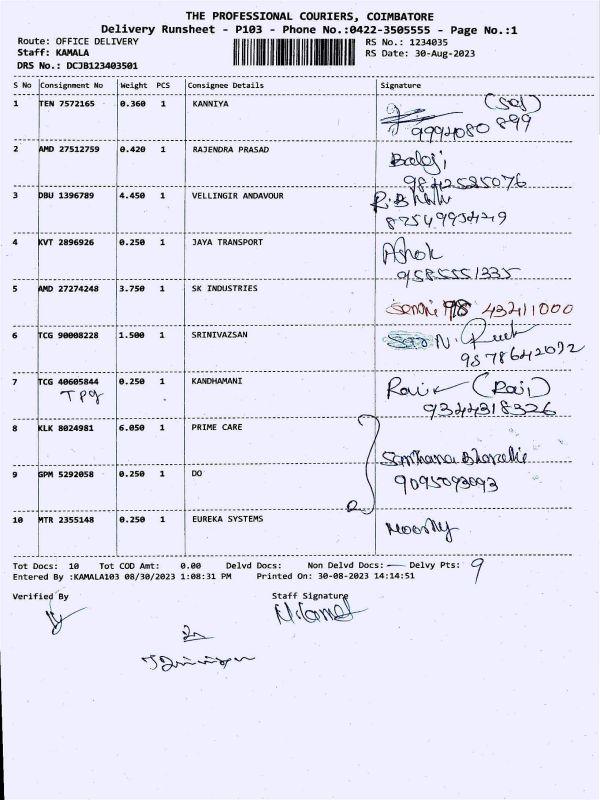 THE PROFESSIONAL COURIERS, COIMBATORE
Delivery Runsheet - P103 - Phone No.:0422-3505555 - Page No.:1
Route: OFFICE DELIVERY RS No.: 1234035
Staff: KAMALA RS Date: 30-Aug-2023
DRS No.: DCJB123403501
S No Consignment No Weight PCS Consignee Details Signature
1 TEN 7572165 0.360 1 KANNIYA
9994080 899
2 AMD 27512759 0.420 1 RAJENDRA PRASAD
Balaji
9842525076
3 DBU 1396789 4.450 1 VELLINGIR ANDAVOUR
4 KVT 2896926 0.250 1 JAYA TRANSPORT Ashok
9585551335
5 AMD 27274248 3.750 1 SK INDUSTRIES
98 43211000
6 TCG 90008228 1.500 1 SRINIVAZSAN
9578642092
7 TCG 40605844 0.250 1 KANDHAMANI
TPG (Raj)
9344318326
8 KLK 8024981 6.050 1 PRIME CARE
9 GPM 5292058 0.250 1 DO 9095093093
10 MTR 2355148 0.250 1 EUREKA SYSTEMS Moorthy
Tot Docs: 10 Tot COD Amt: 0.00 Delvd Docs: Non Delvd Docs: — Delvy Pts: 9
Entered By :KAMALA103 08/30/2023 1:08:31 PM Printed On: 30-08-2023 14:14:51
Verified By Staff Signature